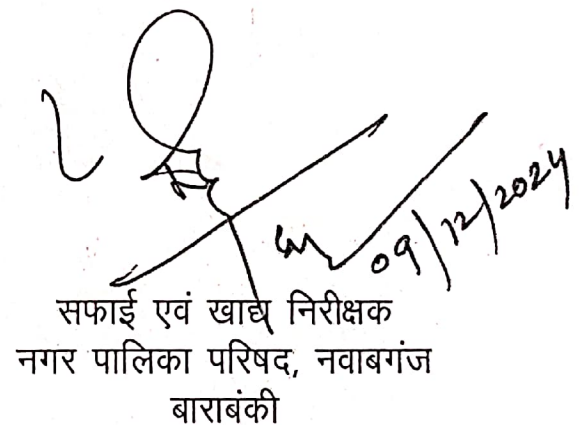 09/12/2024
सफाई एवं खाद्य निरीक्षक
नगर पालिका परिषद, नवाबगंज
बाराबंकी